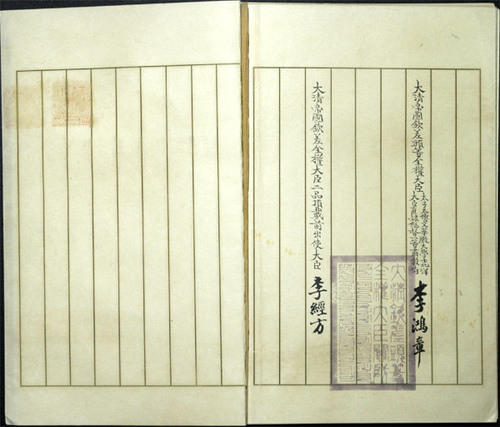 大清帝國欽差頭等全權大臣
太子太傅文華殿大學士北洋
大臣直隸總督一等肅毅伯
李鴻章
大清帝國欽差全權大臣二品頂戴前出使大臣 李經方